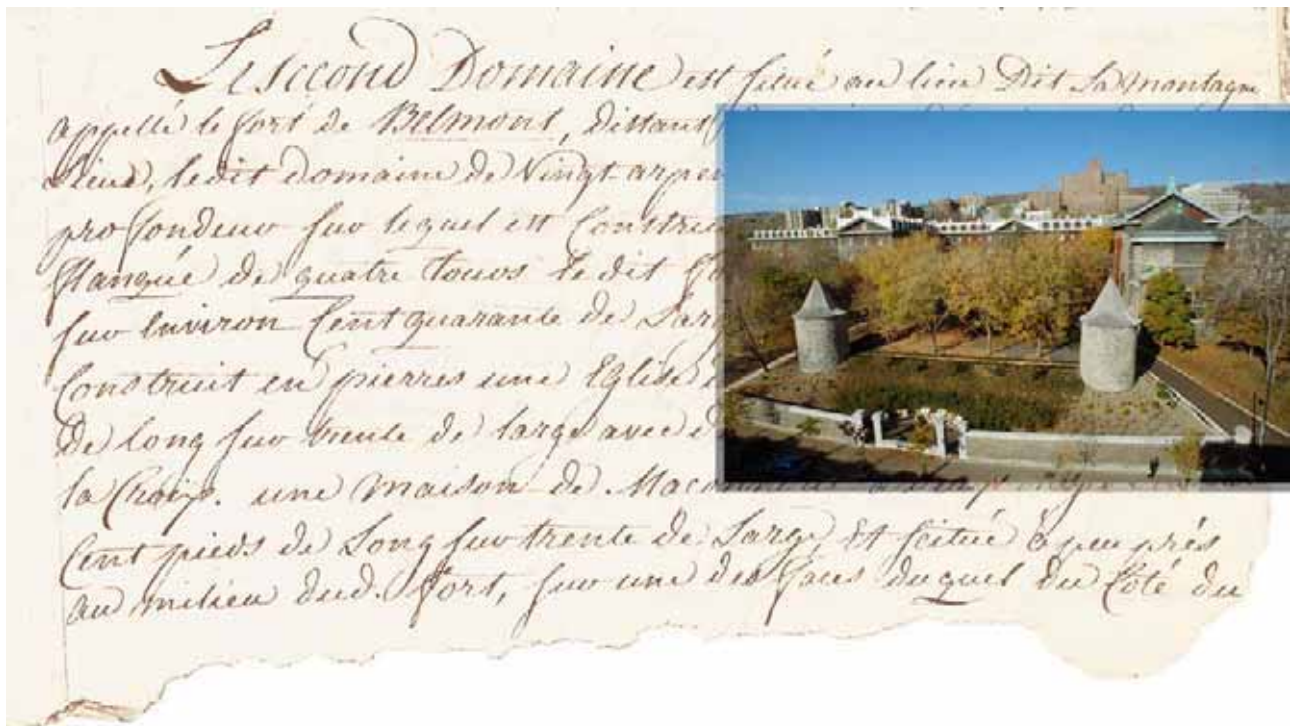 Le second Domaine est situé au lieu Dit la montagne
appellé le fort de Belmont, distant
Lieue, ledit Domaine de Vingt arpen
profondeur sur lequel est Construi
flanquée de quatre Tours Le dit f
sur Environ Cent quarante de Larg
Construit en pierres une Eglise
De long sur trente de large avec
la Croix. une maison de Maconnerie
Cent pieds de Long sur trente de Large, Et scitué à peu près
au milieu dud. fort, sur une des faces duquel du Côté du